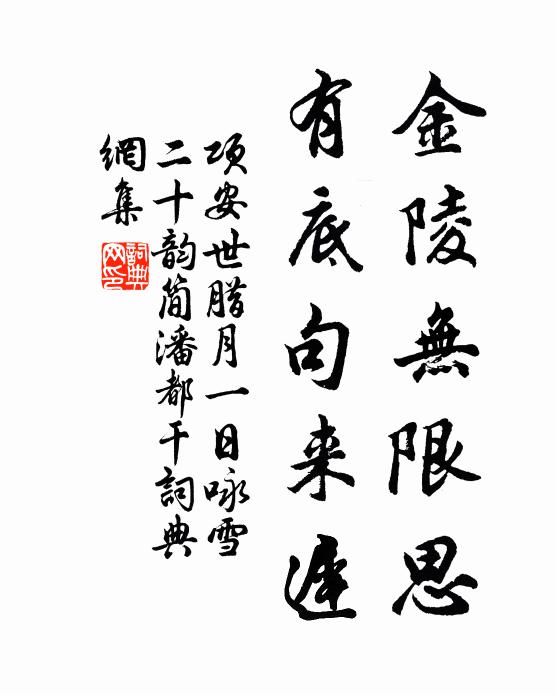 金陵無限思
有底句来遲
項安世臘月一日咏雪
二十韵簡潘都干詞典
網集
詞典
网印